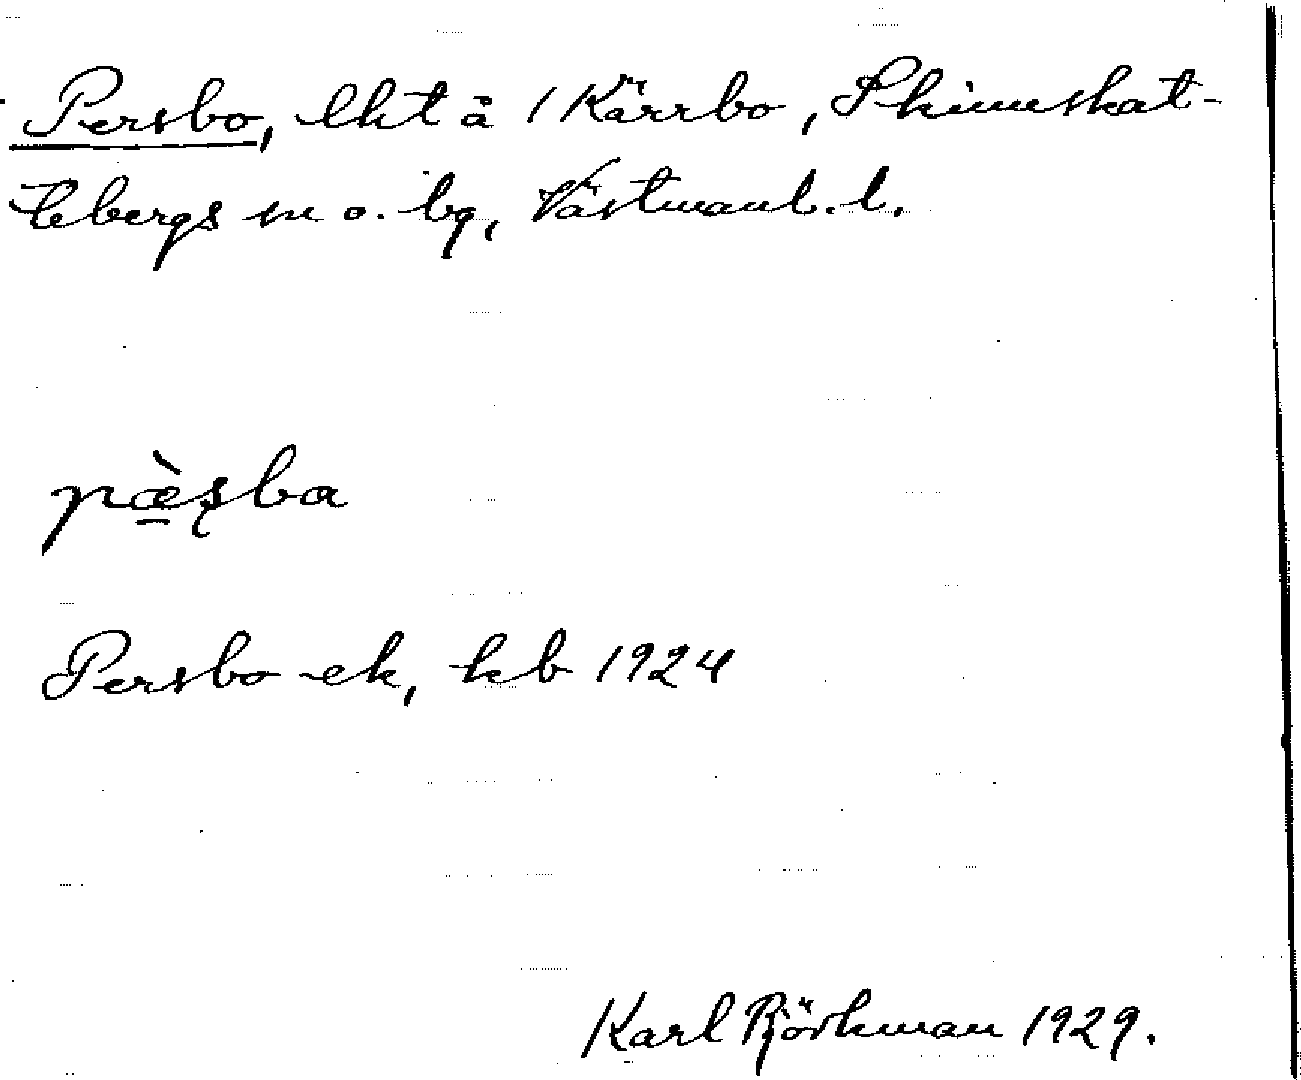 Persbo, lht å 1 Kärrbo, Skinnskat-
tebergs sn o. bg, Västmanl. l.
pæ̠̀ʂba
Persbo -ek, kb 1924
Karl Björkman 1929.